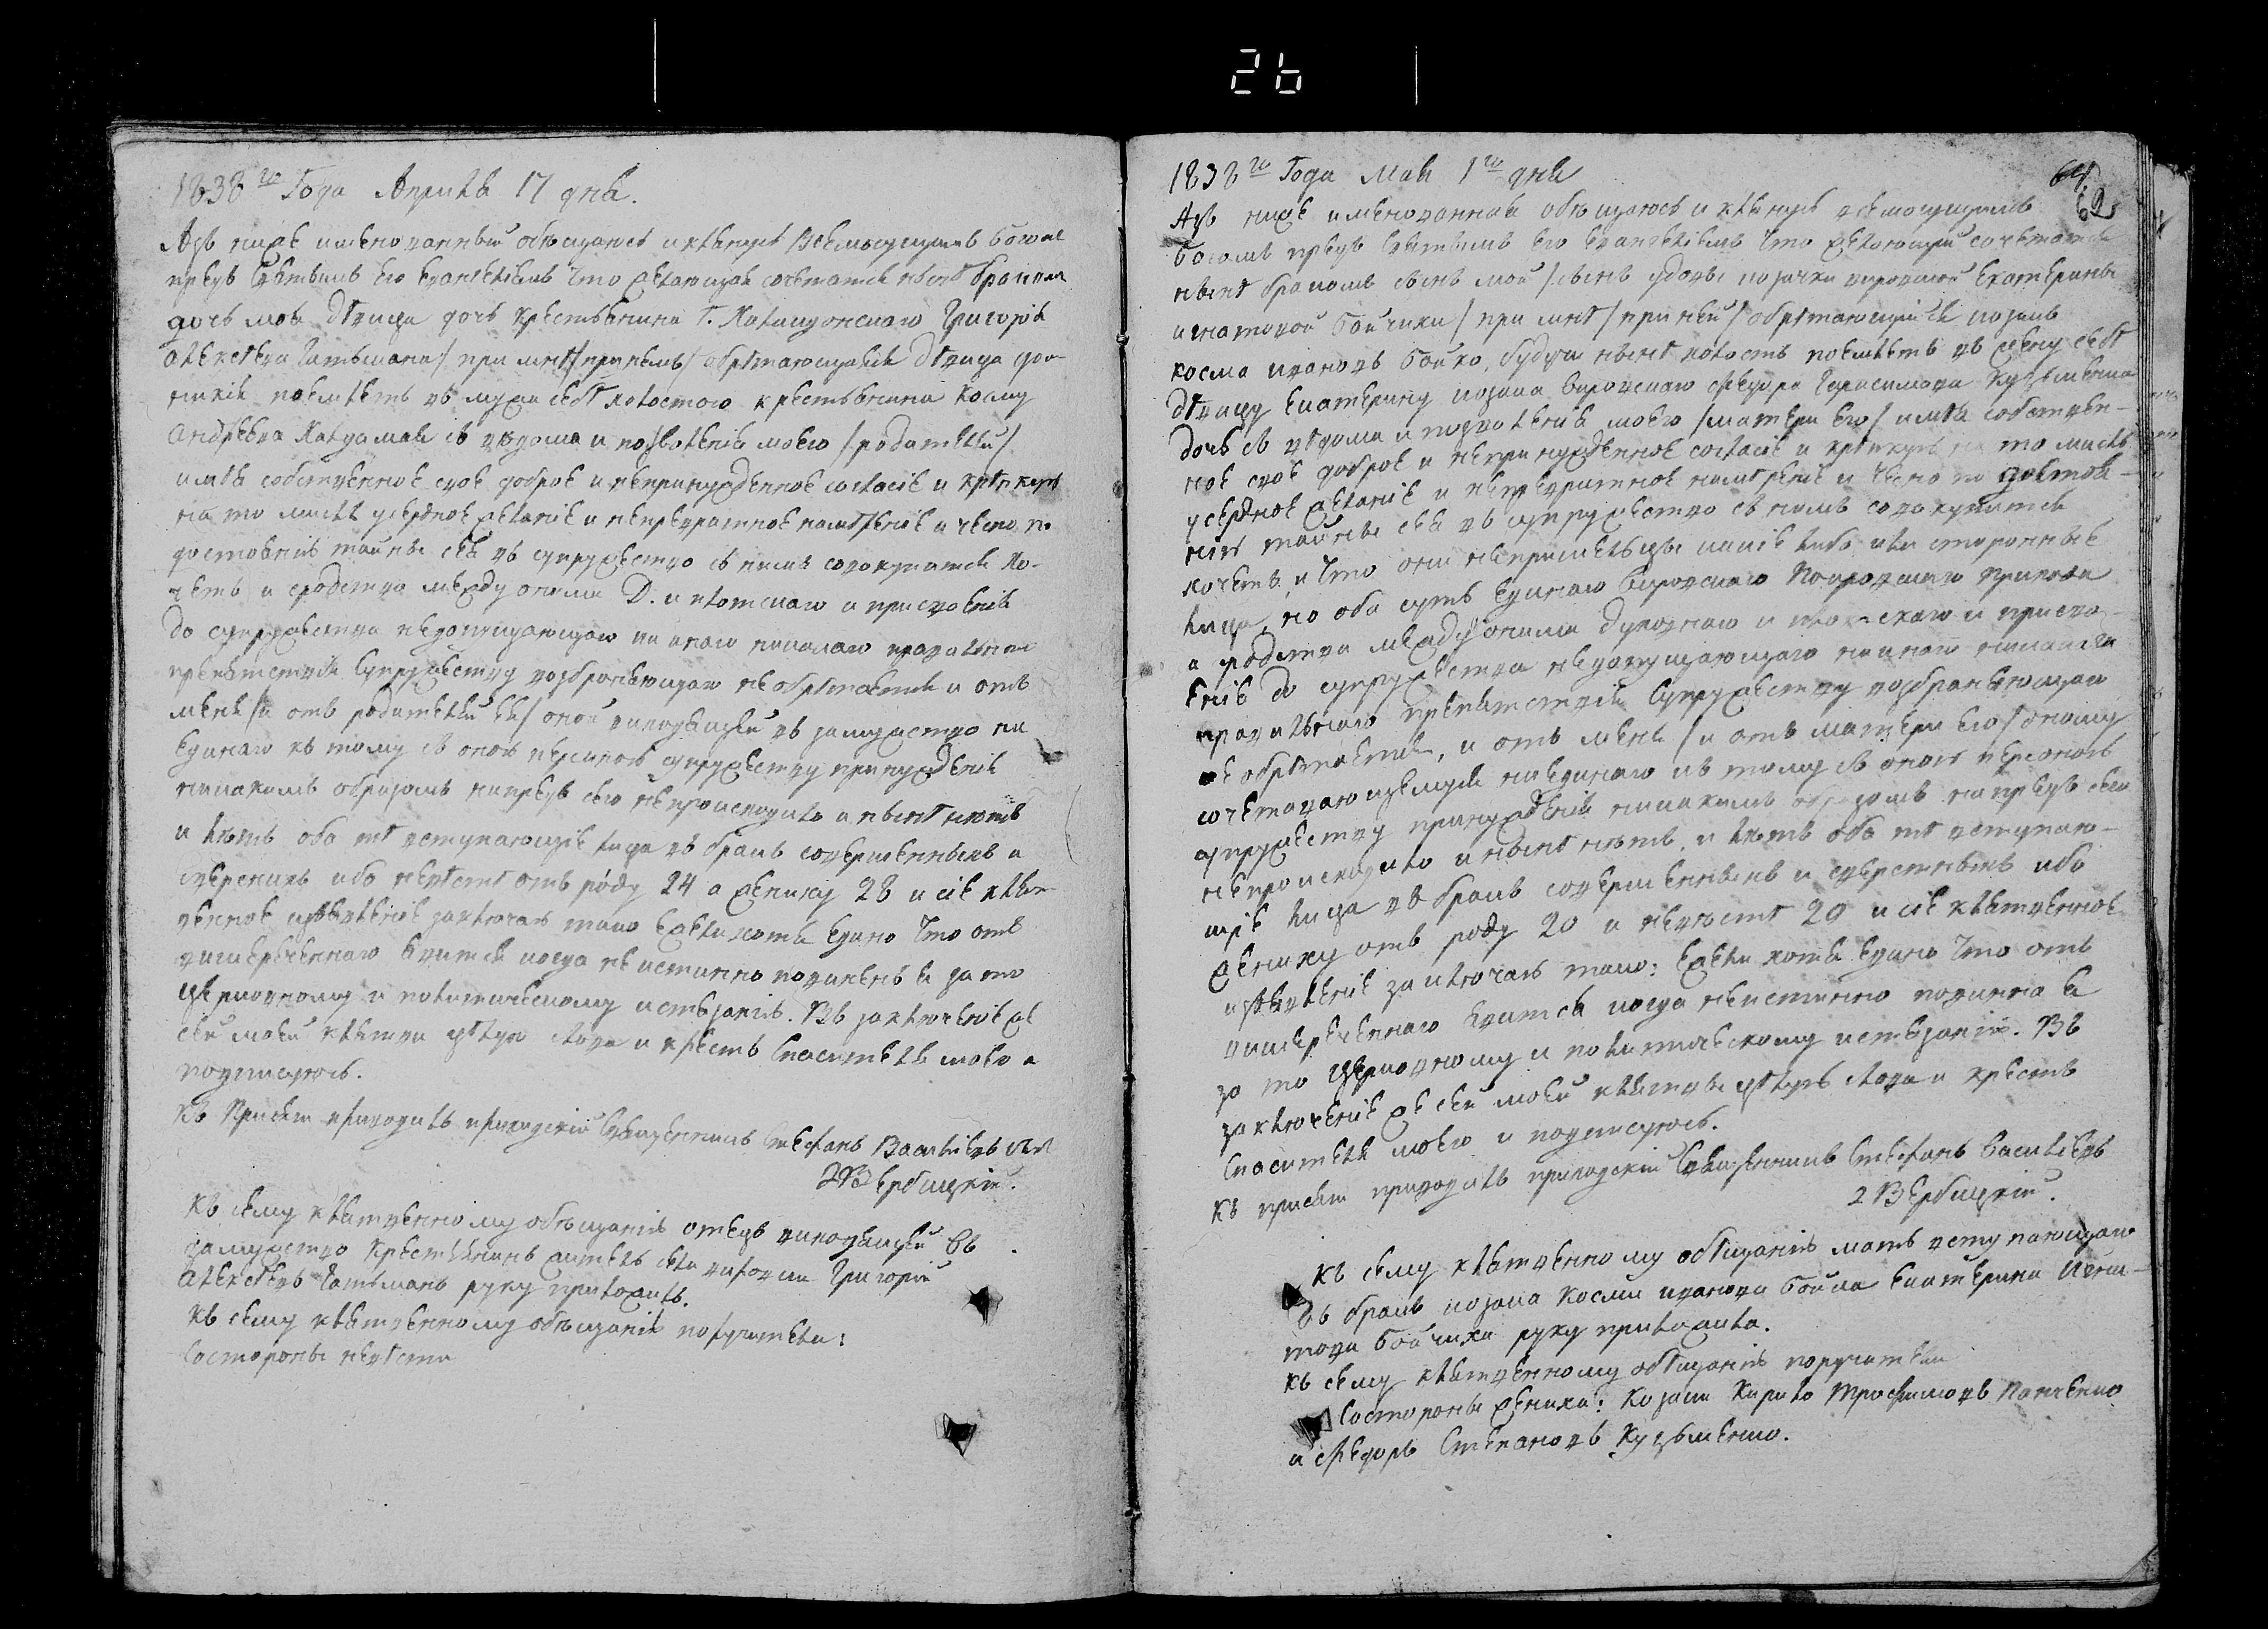 26
1838го Года Апрѣля 17 дня.
Азъ ниже именованный обѣщаюсь и клянусь Всемогущимъ Богомъ
предъ Святымъ Его Евангеліемъ что желающая сочетатся нынѣ бракомъ
дочь моя дѣвица дочь крестьянина Г. Григорія
Алексѣева Гатьмана / при мнѣ / при немъ / обрѣтающаяся дѣвица
поемлетъ въ мужа себѣ холостого крестьянина Косму
Андрѣева съ вѣдома и позволенія моего / родителей /
имѣя собственное свое доброе и непринужденное согласіе и крѣпкую
на то мысль усердное желаніе и непревратное намѣреніе и чесно по
достоянію тайны сея въ супружество съ нимъ совокупится хо-
четъ, и сродства между оними Д. и плотскаго и присвоенія
до супружества недопущающаго ни инаго никакаго правильнаго
препятствія супружеству возбраняющаго не обрѣтается и отъ
меня / и отъ родителей ея / оной виходящей въ замужство ни
единаго къ тому съ оною персоною супружеству принужденія
никакимъ образомъ напредь сего непроисходило и нынѣ нѣтъ
и лѣтъ оба тѣ вступающіе лица въ бракъ совершенныхъ и
ибо невѣстѣ отъ роду 24 а жениху 28 и сіе клят-
венное изъявленіе заключаю тако ежели хотя едино что отъ
вишереченнаго явится когда не истинно повиненъ я за то
церковному и политическому истязанію. Въ заключеніе же
сей моей клятви цѣлую слова и крестъ Спасителя моего и
подписуюсь.
Къ присягѣ приводилъ приходскій Священникъ Стефанъ Василіевъ сынъ
Вербицкій.
Къ сему клятвенному обѣщанію отецъ виходящей въ
замужство крестянинъ житель села Григорій
Алексѣевъ Гатьманъ руку приложилъ.
Къ сему клятвенному обѣщанію поручители:
Состороны невѣсти
1838го Года Мая 1го дня
62
Азъ ниже именованная обѣщаюсь и клянусь всемогущимъ
Богомъ предъ Святымъ Его Евангеліемъ что желающій сочетатся
нынѣ бракомъ сынъ мой / сынъ вдовы козачки Екатерины
Игнатовой Бойчихи / при мнѣ / при ней / обрѣтающійся козакъ
Косма Ивановъ Бойко, будучи нынѣ холостъ поемлетъ въ жену себѣ
дѣвицу Екатерину козака Федора Герасимова Кузьменка
дочь съ вѣдома и позволенія моего / матери его / имѣя собствен-
ное свое доброе и непринужденное согласіе и крѣпкую на то мысль
усердное желаніе и непревратное намѣреніе и чесно по достоя-
нію тайны сея въ супружество съ нимъ совокупится
хочетъ, и что они непришельцы какіе либо или сторонные
лица, но оба суть единаго Покровскаго прихода
и сродства между оними духовнаго и плотскаго и присво-
енія до супружества недопущающаго ни инаго никакаго
правильнаго препятствія супружеству возбраняющаго
не обрѣтается, и отъ меня / и отъ матери его / оному
сочетовающемуся ни единаго къ тому съ оною персоною
супружеству принужденія никакимъ образомъ напредь сего
непроисходило и нынѣ нѣтъ, и лѣтъ оба тѣ вступаю-
щіе лица въ бракъ совершенныхъ и сверстныхъ ибо
жениху отъ роду 20 и невѣстѣ 20 и сіе клятвенное
изъявленіе заключаю тако: ежели хотя едино что отъ
вишереченнаго явится когда неистинно повинна я
за то церковному и политическому истязанію. Въ
заключеніе же сей моей клятвы цѣлую слова и крестъ
Спасителя моего и подписуюсь.
Къ присягѣ приводилъ приходскій Священникъ Стефанъ Василіевъ
Вербицкій.
Къ сему клятвенному обѣщанію мать вступающаго
въ бракъ козака Косми Иванова Бойка Екатерина Игна-
това Бойчиха руку приложила.
Къ сему клятвенному обѣщанію поручители
Состороны жениха: Козаки Кирило Трофимовъ Панченко
и Федоръ Степановъ Кузьменко.